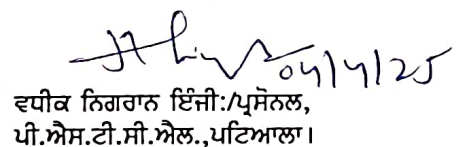 04/4/25
ਵਧੀਕ ਨਿਗਰਾਨ ਇੰਜੀ:/ਪ੍ਰਸੋਨਲ,
ਪੀ.ਐਸ.ਟੀ.ਸੀ.ਐਲ.,ਪਟਿਆਲਾ।